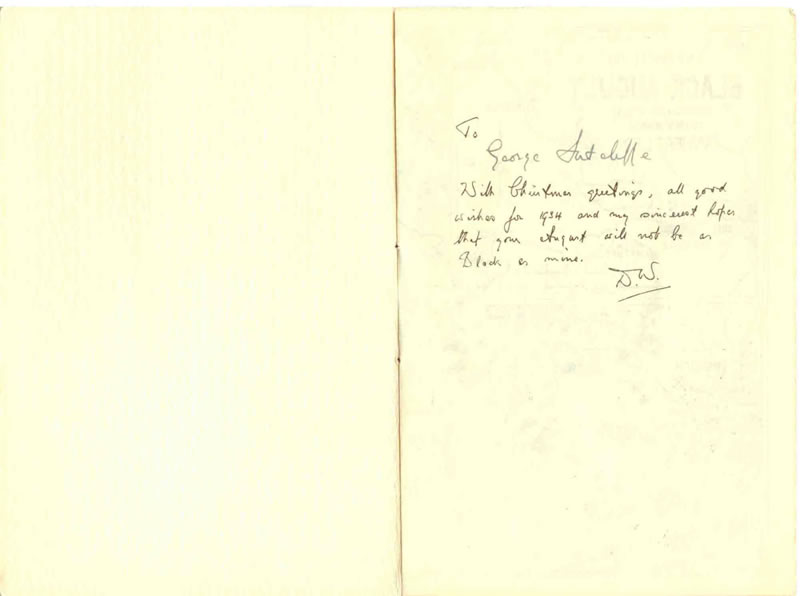 To
George Sutcliffe
With Christmas greetings, all good
wishes for 1934 and my sincerest hopes
that your August will not be as
Black as mine.
D.W.